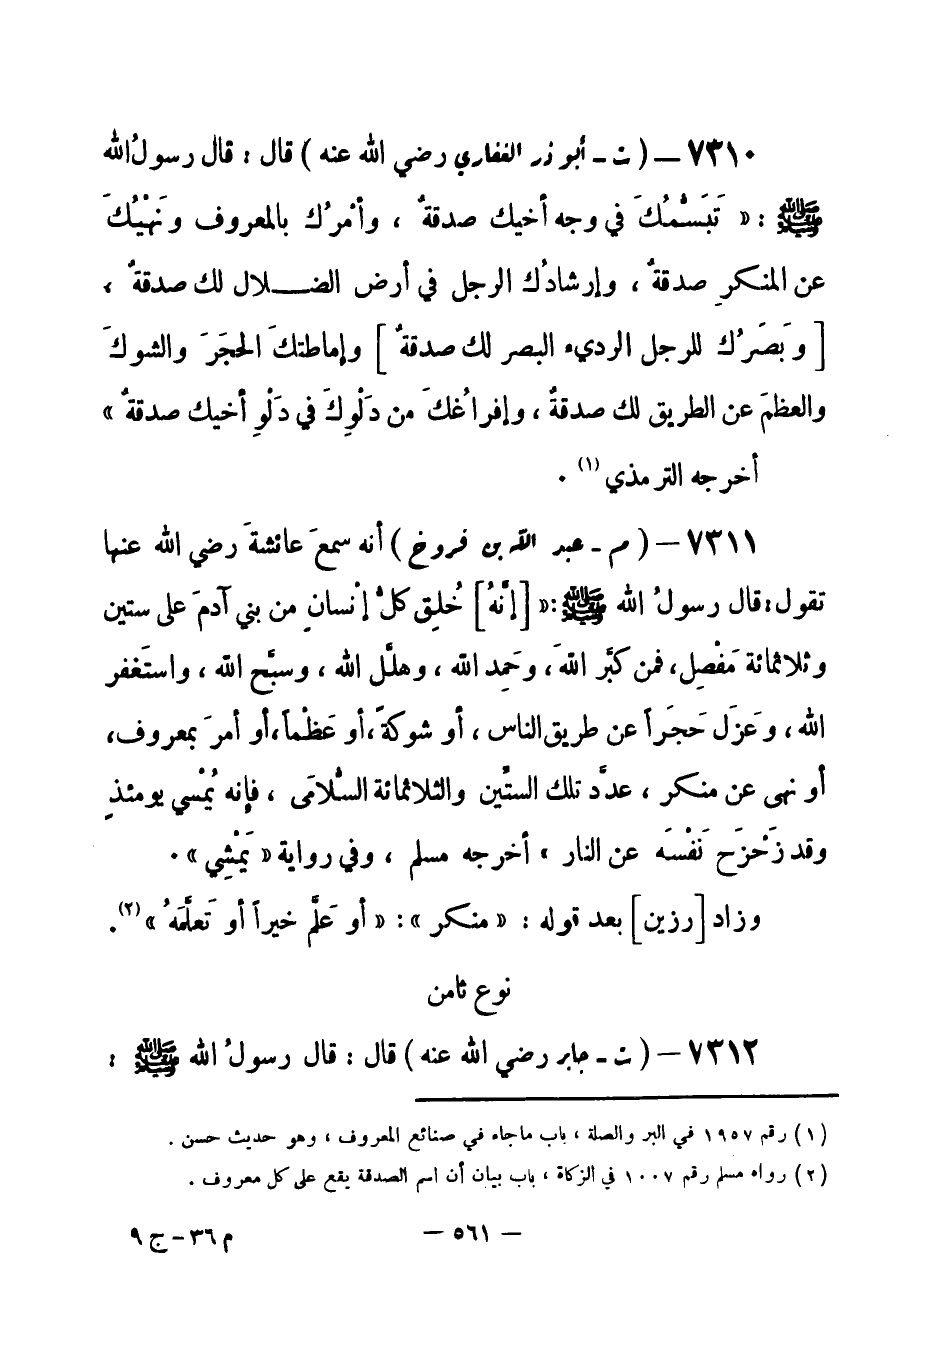 ٧٣١٠ – ( ت - أبو ذر الغفاري رضي الله عنه ) قال : قال رسولُ الله
ﷺ : « تَبَسُّمُكَ في وجه أخيك صدقةٌ ، وأمْرُك بالمعروف ونَهْيُكَ
عن المنكرِ صدقةٌ ، وإرشادُك الرجل في أرض الضلال لك صدقةٌ ،
[ وبَصَرُك للرجل الرديء البصر لك صدقةٌ ] وإماطتكَ الحجَرَ والشوكَ
والعظمَ عن الطريق لك صدقةٌ ، وإفراغُكَ من دَلْوِكَ في دَلْوِ أخيك صدقةٌ »
أخرجه الترمذي (١) .
٧٣١١ – ( م - عبد الله بن فروخ ) أنه سمعَ عائشةَ رضي الله عنها
تقول : قال رسولُ الله ﷺ : « [ إنَّهُ ] خُلِق كلُّ إنْسانٍ من بني آدمَ على ستين
وثلاثمائة مَفْصِل ، فمن كبَّر اللهَ ، وحَمِد الله ، وهلَّل الله ، وسبَّح الله ، واستَغفر
الله ، وعَزَل حَجَراً عن طريق الناس ، أو شوكةً ، أو عَظْماً ، أو أمرَ بمعروف ،
أو نهى عن منكر ، عددَ تلك الستِّين والثلاثمائة السُّلامَى ، فإنه يُمْسي يومئذٍ
وقد زَحْزَح نَفْسَه عن النار » أخرجه مسلم ، وفي رواية « يَمْشِي » .
وزاد [ رزين ] بعد قوله : « منكر » : « أو عَلَّم خيراً أو تَعلَّمَهُ » (٢) .
نوع ثامن
٧٣١٢ – ( ت - جابر رضي الله عنه ) قال : قال رسولُ الله ﷺ :
(١) رقم ١٩٥٧ في البر والصلة ، باب ماجاء في صنائع المعروف ، وهو حديث حسن .
(٢) رواه مسلم رقم ١٠٠٧ في الزكاة ، باب بيان أن اسم الصدقة يقع على كل معروف .
– ٥٦١ –
م ٣٦ – ج ٩